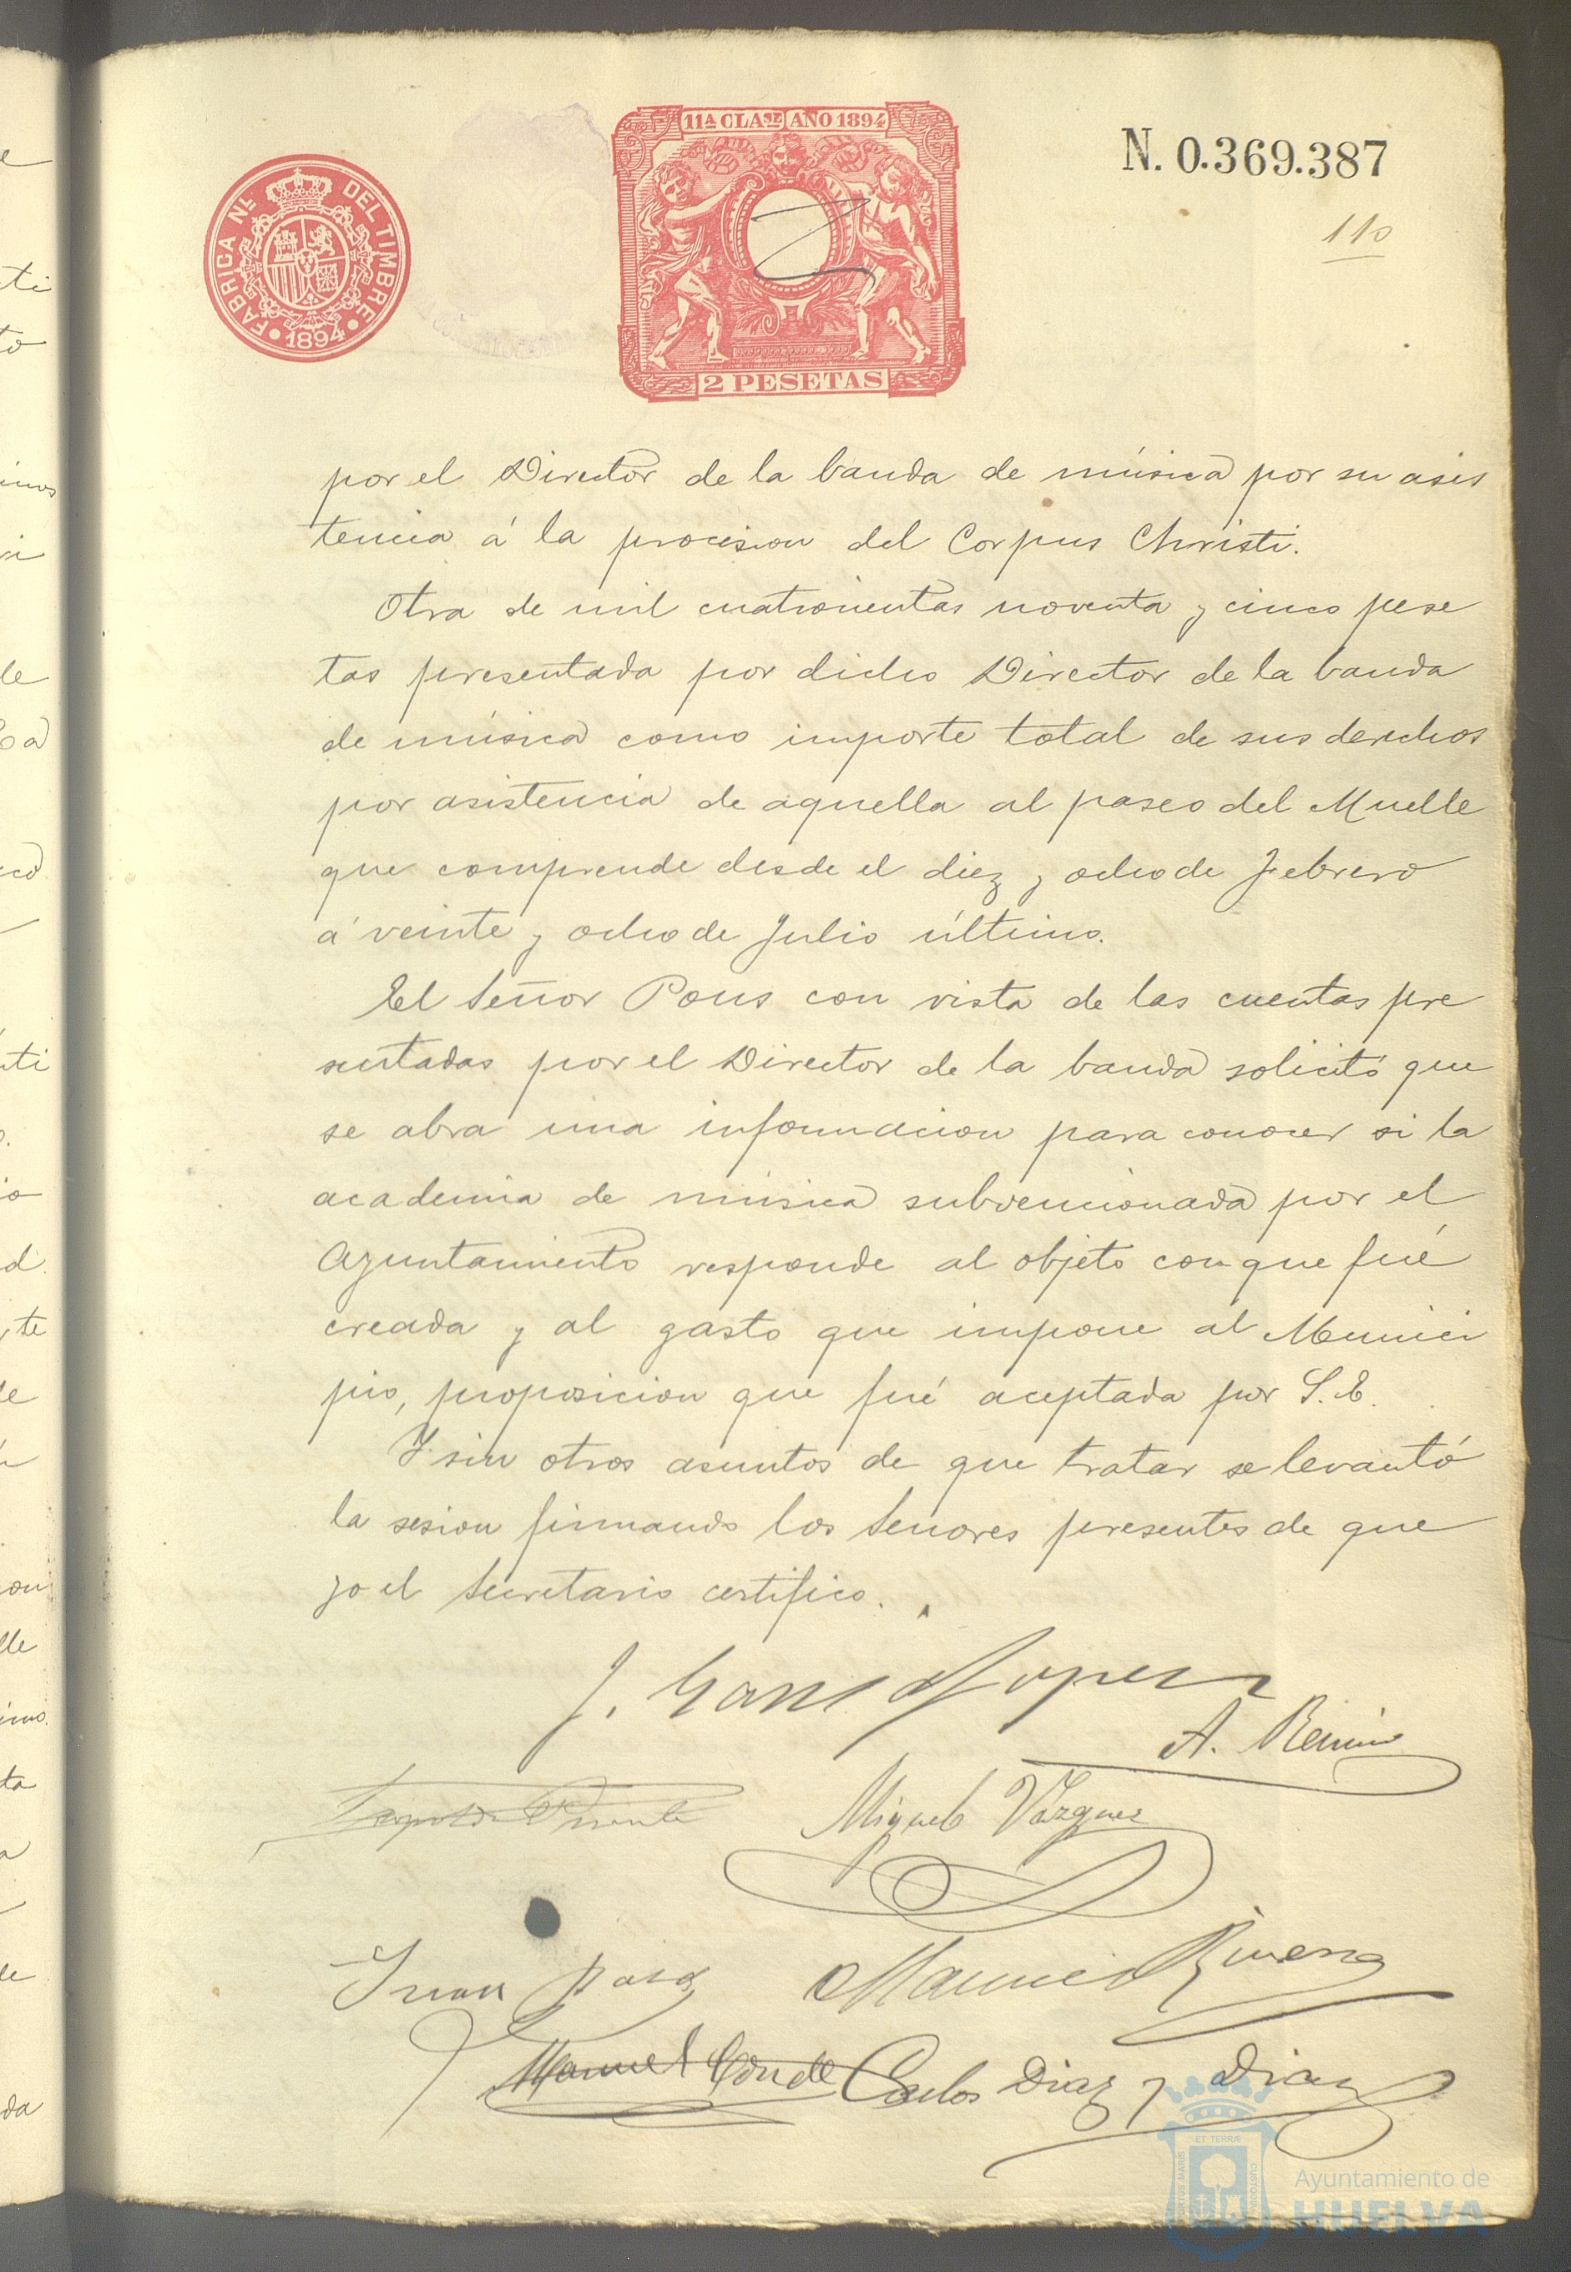 FÁBRICA NL. DEL TIMBRE
1894
11A CLASE AÑO 1894
2 PESETAS
N. 0.369.387
110
por el Director de la banda de música por su asis
tencia á la procesion del Corpus Christi.
Otra de mil cuatrocientas noventa y cinco pese
tas presentada por dicho Director de la banda
de música como importe total de sus derechos
por asistencia de aquella al paseo del Muelle
que comprende desde el diez y ocho de Febrero
á veinte y ocho de Julio último.
El Señor Pons con vista de las cuentas pre
sentadas por el Director de la banda solicitó que
se abra una informacion para conocer si la
academia de música subvencionada por el
Ayuntamiento responde al objeto con que fué
creada y al gasto que impone al Munici
pio, proposicion que fué aceptada por S.E.
Y sin otros asuntos de que tratar se levantó
la sesion firmando los Señores presentes de que
yo el Secretario certifico.
J. Lopez
A.
Miguel Vázquez
Juan
Manuel
Manuel Conde
Carlos Diaz y Diaz
ET TERRÆ
Ayuntamiento de
HUELVA